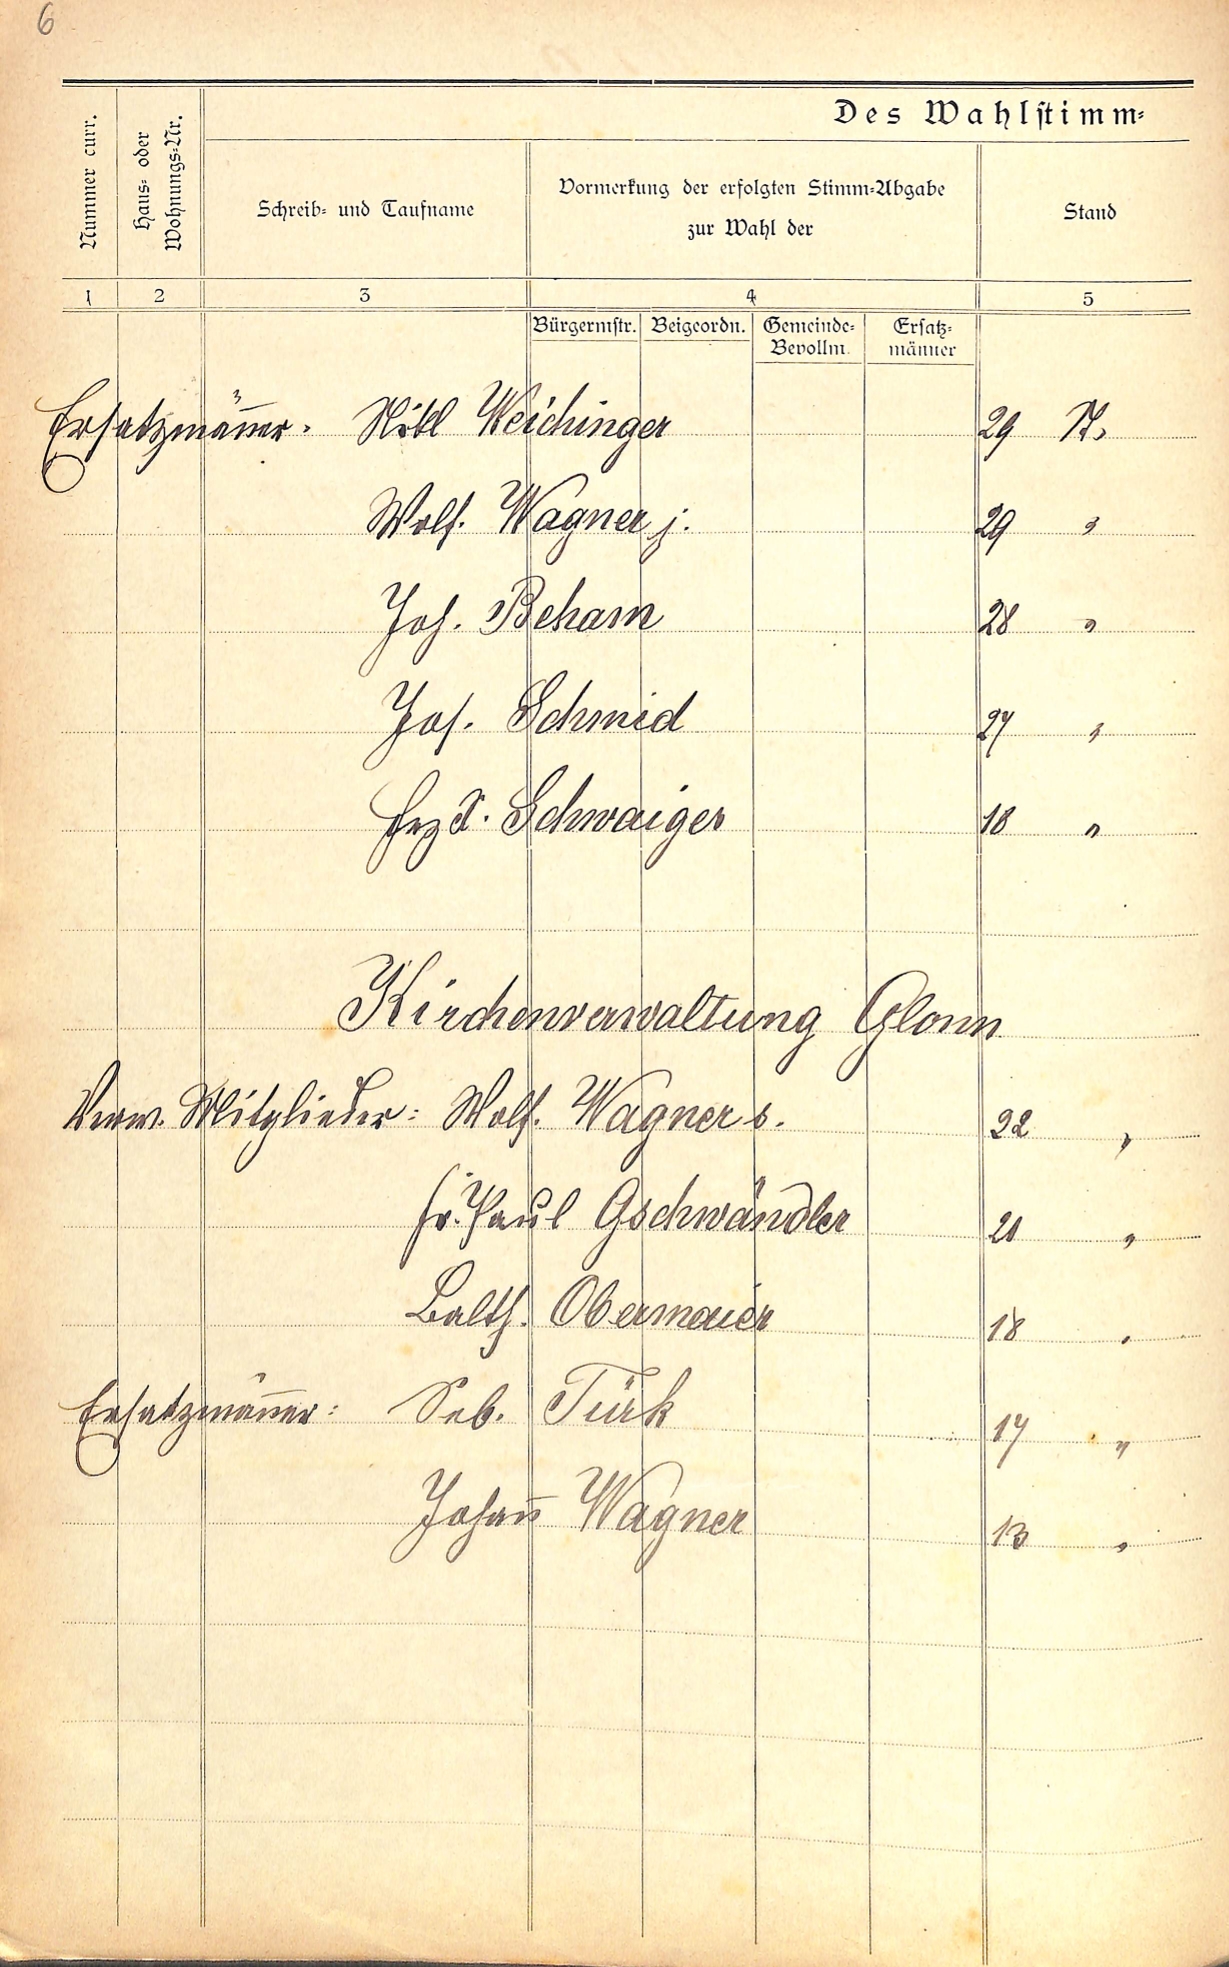 6
Des Wahlstimm-
Nummer curr.
Haus- oder
Wohnungs-Nr.
Schreib- und Taufname
Vormerkung der erfolgten Stimm-Abgabe
zur Wahl der
Stand
1 2 3 4 5
Bürgermstr. Beigeordn. Gemeinde- Ersatz-
Bevollm. männer
Ersatzmänner. Nikl Weichinger 29 St.
Wolf. Wagner j. 29 "
Joh. Beham 28 "
Jos. Schmid 27 "
Frz X. Schwaiger 18 "
Kirchenverwaltung Glonn
Verw. Mitglieder: Wolf. Wagner s. 22 "
Fr. Paul Gschwändler 21 "
Balth. Obermaier 18 "
Ersatzmänner: Seb. Türk 17 "
Johan̄ Wagner 13 "